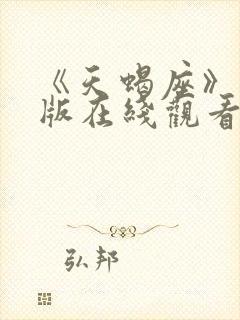 《天蝎座》
版在綫觀看
弘邦